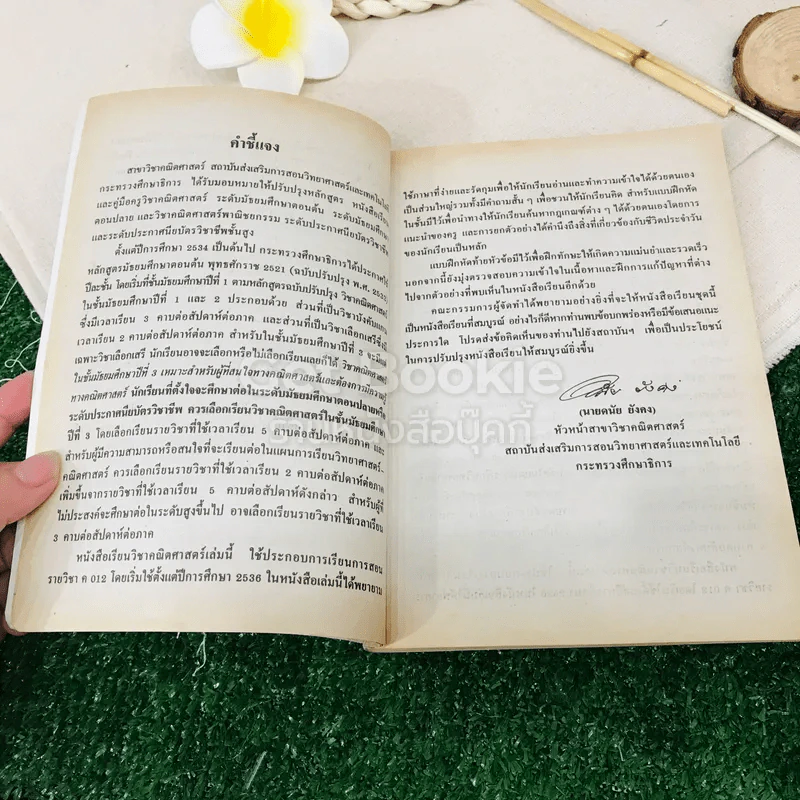 คำชี้แจง
สาขาวิชาคณิตศาสตร์ สถาบันส่งเสริมการสอนวิทยาศาสตร์และเทคโนโลยี
กระทรวงศึกษาธิการ ได้รับมอบหมายให้ปรับปรุงหลักสูตร หนังสือเรียน
และคู่มือครูวิชาคณิตศาสตร์ ระดับมัธยมศึกษาตอนต้น ระดับมัธยมศึกษา
ตอนปลาย และวิชาคณิตศาสตร์พาณิชยกรรม ระดับประกาศนียบัตรวิชาชีพ
และระดับประกาศนียบัตรวิชาชีพชั้นสูง
ตั้งแต่ปีการศึกษา 2534 เป็นต้นไป กระทรวงศึกษาธิการได้ประกาศใช้
หลักสูตรมัธยมศึกษาตอนต้น พุทธศักราช 2521 (ฉบับปรับปรุง พ.ศ. 2533)
ปีละชั้น โดยเริ่มที่ชั้นมัธยมศึกษาปีที่ 1 ตามหลักสูตรฉบับปรับปรุง วิชาคณิตศาสตร์
ในชั้นมัธยมศึกษาปีที่ 1 และ 2 ประกอบด้วย ส่วนที่เป็นวิชาบังคับแกน
ซึ่งมีเวลาเรียน 3 คาบต่อสัปดาห์ต่อภาค และส่วนที่เป็นวิชาเลือกเสรีซึ่งมี
เวลาเรียน 2 คาบต่อสัปดาห์ต่อภาค สำหรับในชั้นมัธยมศึกษาปีที่ 3 จะมี
เฉพาะวิชาเลือกเสรี นักเรียนอาจจะเลือกหรือไม่เลือกเรียนเลยก็ได้ วิชาคณิตศาสตร์
ในชั้นมัธยมศึกษาปีที่ 3 เหมาะสำหรับผู้ที่สนใจทางคณิตศาสตร์และต้องการมีความรู้
ทางคณิตศาสตร์ นักเรียนที่ตั้งใจจะศึกษาต่อในระดับมัธยมศึกษาตอนปลายหรือ
ระดับประกาศนียบัตรวิชาชีพ ควรเลือกเรียนวิชาคณิตศาสตร์ในชั้นมัธยมศึกษา
ปีที่ 3 โดยเลือกเรียนรายวิชาที่ใช้เวลาเรียน 5 คาบต่อสัปดาห์ต่อภาค และ
สำหรับผู้มีความสามารถหรือสนใจที่จะเรียนต่อในแผนการเรียนวิทยาศาสตร์-
คณิตศาสตร์ ควรเลือกเรียนรายวิชาที่ใช้เวลาเรียน 2 คาบต่อสัปดาห์ต่อภาค
เพิ่มขึ้นจากรายวิชาที่ใช้เวลาเรียน 5 คาบต่อสัปดาห์ดังกล่าว สำหรับผู้ที่
ไม่ประสงค์จะศึกษาต่อในระดับสูงขึ้นไป อาจเลือกเรียนรายวิชาที่ใช้เวลาเรียน
3 คาบต่อสัปดาห์ต่อภาค
หนังสือเรียนวิชาคณิตศาสตร์เล่มนี้ ใช้ประกอบการเรียนการสอน
รายวิชา ค 012 โดยเริ่มใช้ตั้งแต่ปีการศึกษา 2536 ในหนังสือเล่มนี้ได้พยายาม
ใช้ภาษาที่ง่ายและรัดกุมเพื่อให้นักเรียนอ่านและทำความเข้าใจได้ด้วยตนเอง
เป็นส่วนใหญ่รวมทั้งมีคำถามสั้น ๆ เพื่อชวนให้นักเรียนคิด สำหรับแบบฝึกหัด
ในชั้นมีไว้เพื่อนำทางให้นักเรียนค้นหากฎเกณฑ์ต่าง ๆ ได้ด้วยตนเองโดยการ
แนะนำของครู และการยกตัวอย่างได้คำนึงถึงสิ่งที่เกี่ยวข้องกับชีวิตประจำวัน
ของนักเรียนเป็นหลัก
แบบฝึกหัดท้ายหัวข้อมีไว้เพื่อฝึกทักษะให้เกิดความแม่นยำและรวดเร็ว
นอกจากนี้ยังมุ่งตรวจสอบความเข้าใจในเนื้อหาและฝึกการแก้ปัญหาที่ต่าง
ไปจากตัวอย่างที่พบเห็นในหนังสือเรียนอีกด้วย
คณะกรรมการผู้จัดทำได้พยายามอย่างยิ่งที่จะให้หนังสือเรียนชุดนี้
เป็นหนังสือเรียนที่สมบูรณ์ อย่างไรก็ดีหากท่านพบข้อบกพร่องหรือมีข้อเสนอแนะ
ประการใด โปรดส่งข้อคิดเห็นของท่านไปยังสถาบันฯ เพื่อเป็นประโยชน์
ในการปรับปรุงหนังสือเรียนให้สมบูรณ์ยิ่งขึ้น
(นายดนัย ยังคง)
หัวหน้าสาขาวิชาคณิตศาสตร์
สถาบันส่งเสริมการสอนวิทยาศาสตร์และเทคโนโลยี
กระทรวงศึกษาธิการ
Got Bookie
ร้านหนังสือบุ๊คกี้